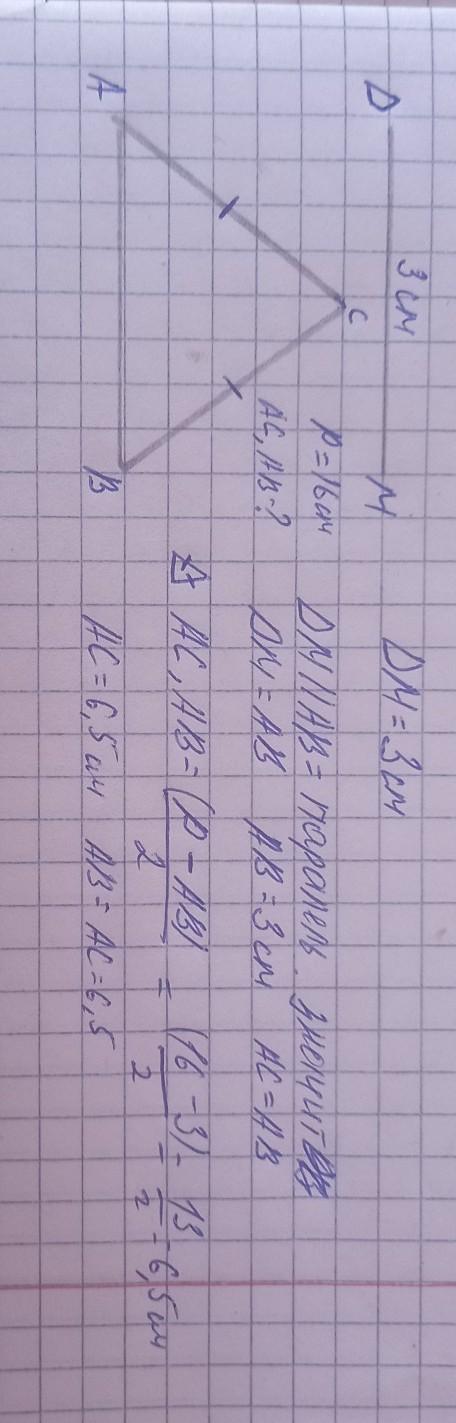 D 3 см М
DM = 3 см
C
P = 16 см
AC, AB - ?
A B
DM || AB = паралель. значит
DM = AB AB = 3 см AC = AB
AC, AB = (P - AB) / 2 = (16 - 3) / 2 = 13 / 2 = 6,5 см
AC = 6,5 см AB = AC = 6,5